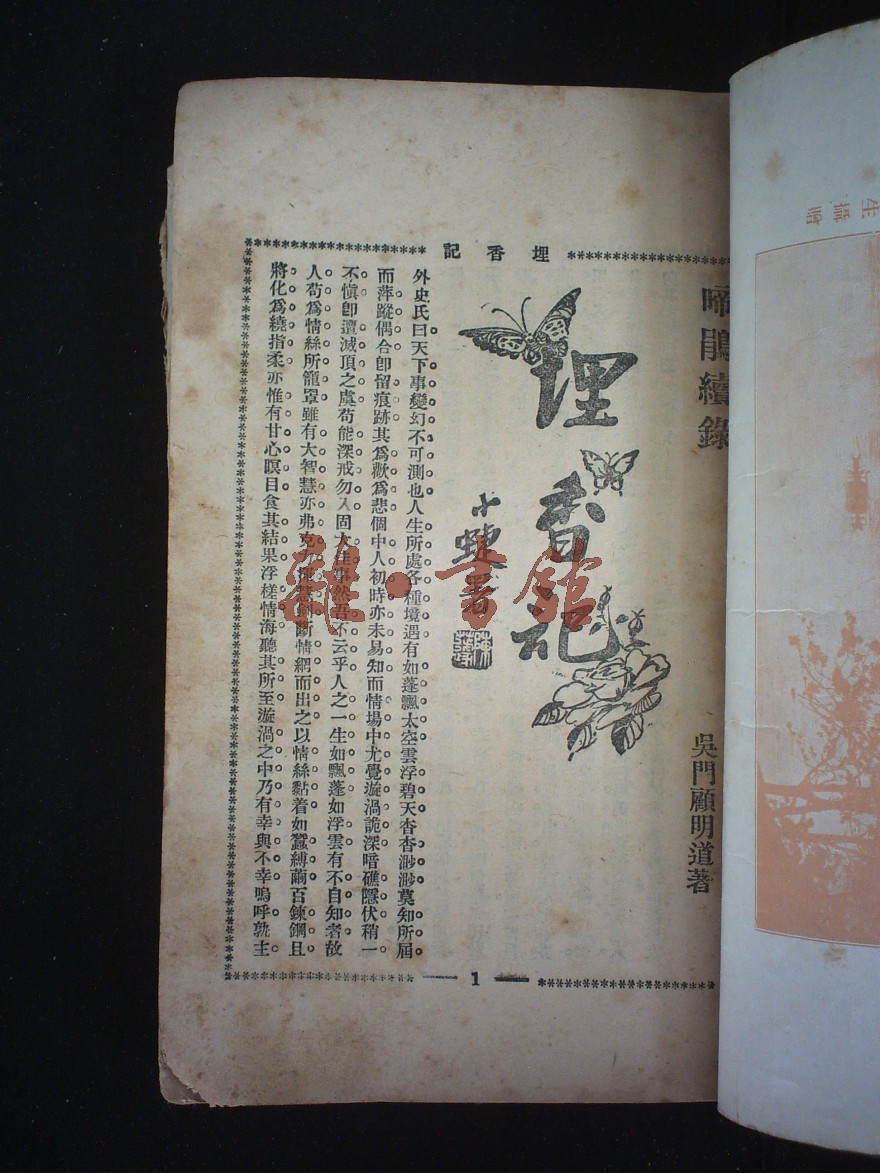 埋香記
啼鵑續錄
吳門顧明道著
埋香記
小蝶署
外史氏曰天下事變幻不可測也人生所處各種境遇有如蓬飄太空雲浮碧天杳杳渺渺莫知所屆
而萍蹤偶合卽留痕跡其爲歡爲悲個中人初時亦未易知而情場中尤覺漩渦詭深暗礁隱伏稍一
不愼卽遭滅頂之虞苟能深戒勿入固大佳事然吾不云乎人之一生如飄蓬如浮雲有不自知者故
人苟爲情絲所籠罩雖有大智慧亦弗克揮慧劍斷情網而出之以情絲黏着如蠶縛繭百鍊鋼且
將化爲繞指柔亦惟有甘心瞑目食其結果浮槎情海聽其所至漩渦之中乃有幸與不幸嗚呼孰主
1
雜·書館